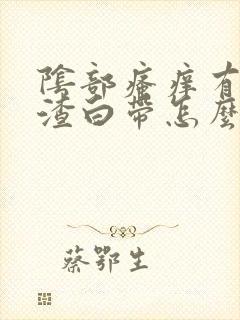 陰部瘙痒有
渣白帶怎麼
蔡鄂生